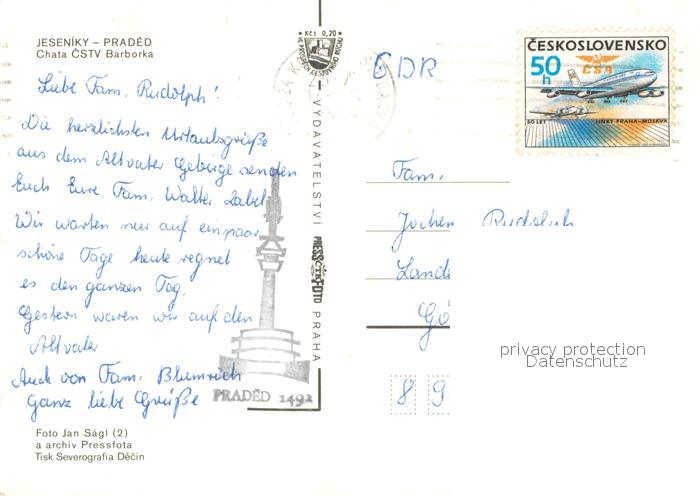 JESENÍKY – PRADĚD
Chata ČSTV Barborka
Liebe Fam. Rudolph!
Die herzlichsten Urlaubsgrüße
aus dem Altvater Gebirge senden
Euch Eure Fam. Walter Zabel
Wir warten nur auf ein paar
schöne Tage heute regnet
es den ganzen Tag.
Gestern waren wir auf den
Altvater
Auch von Fam. Blumrich
Ganz liebe Grüße
PRADĚD 1492
Foto Jan Ságl (2)
a archív Pressfota
Tisk Severografia Děčín
Kčs 0,20
VYDAVATELSTVÍ PRESSFOTO PRAHA
DDR
ČESKOSLOVENSKO
50 h
ČSA
50 LET LINKY PRAHA–MOSKVA
Fam.
Jochen Rudolph
Lande
Gö
8 9
privacy protection
Datenschutz